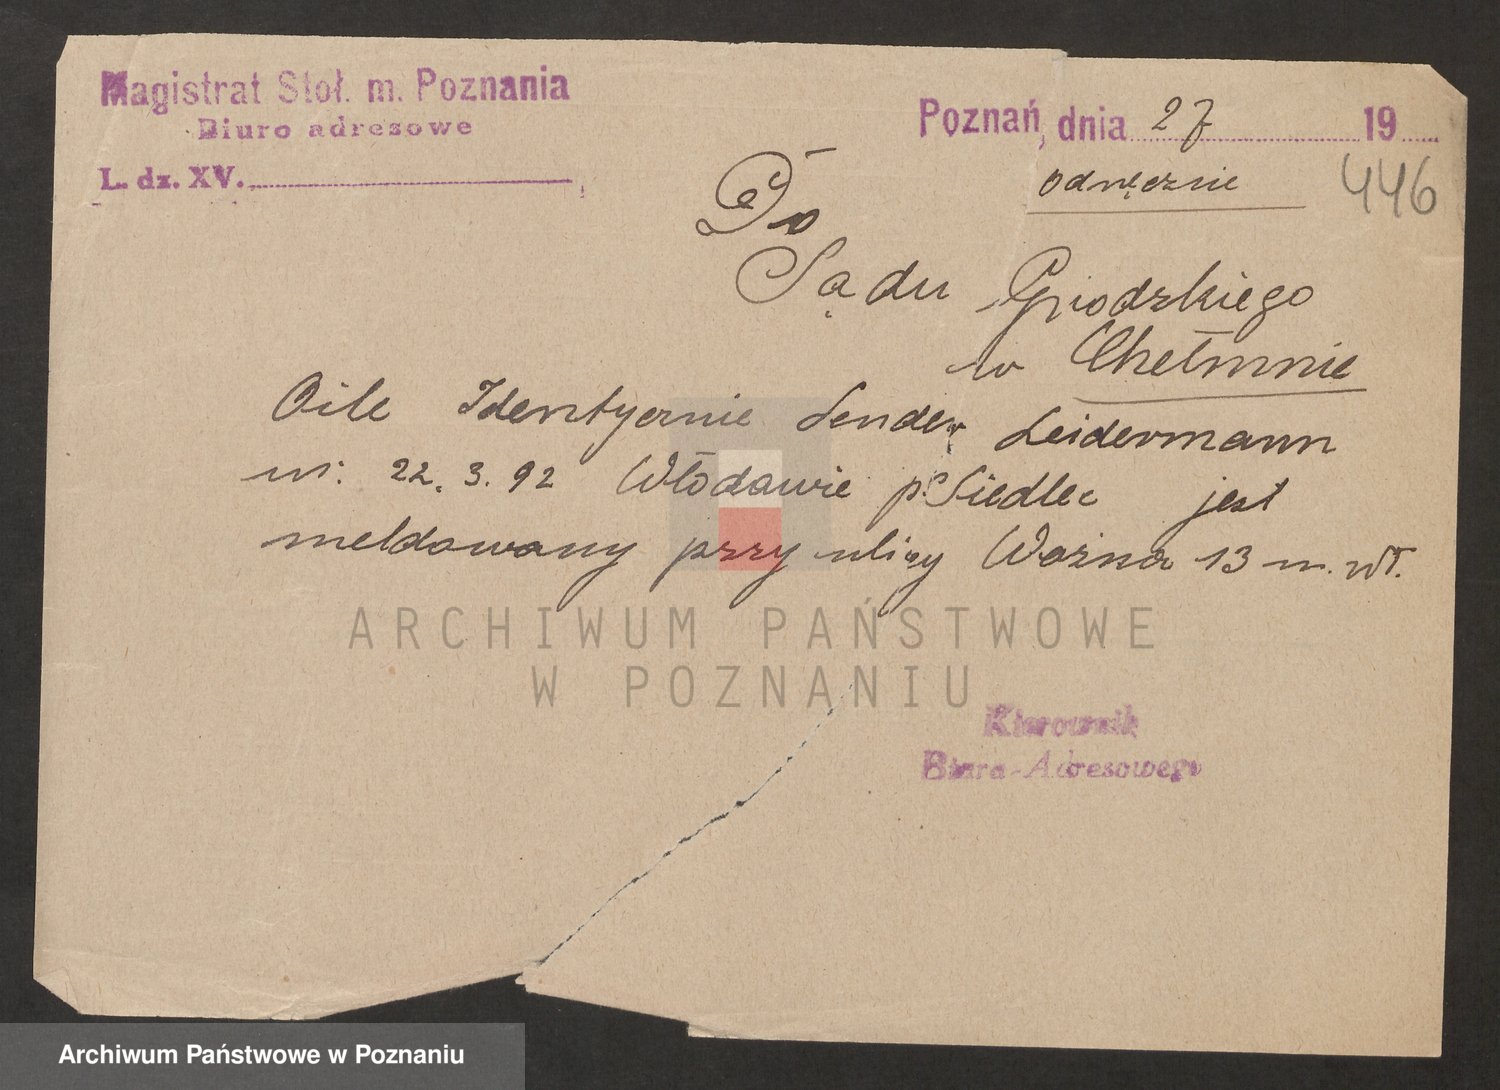 Magistrat Stoł. m. Poznania
Biuro adresowe
L. dz. XV.
Poznań, dnia 27 19
odręcznie
446
Do
Sądu Grodzkiego
w Chełmnie
Oile Identycznie Sender Leidermann
ur. 22.3.92 Włodawie p Siedlec jest
meldowany przy ulicy Woźna 13 m. wł.
ARCHIWUM PAŃSTWOWE
W POZNANIU
Kierownik
Biura-Adresowego
Archiwum Państwowe w Poznaniu